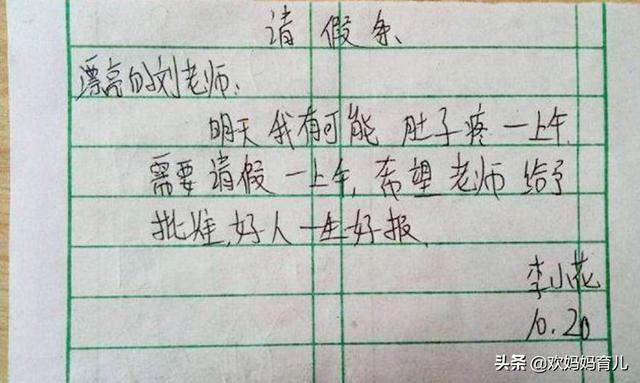 请假条
漂亮的刘老师、
明天我有可能 肚子疼一上午
需要请假一上午,希望老师给予
批准,好人一生好报,
李小花
10.20
头条 @欢妈妈育儿